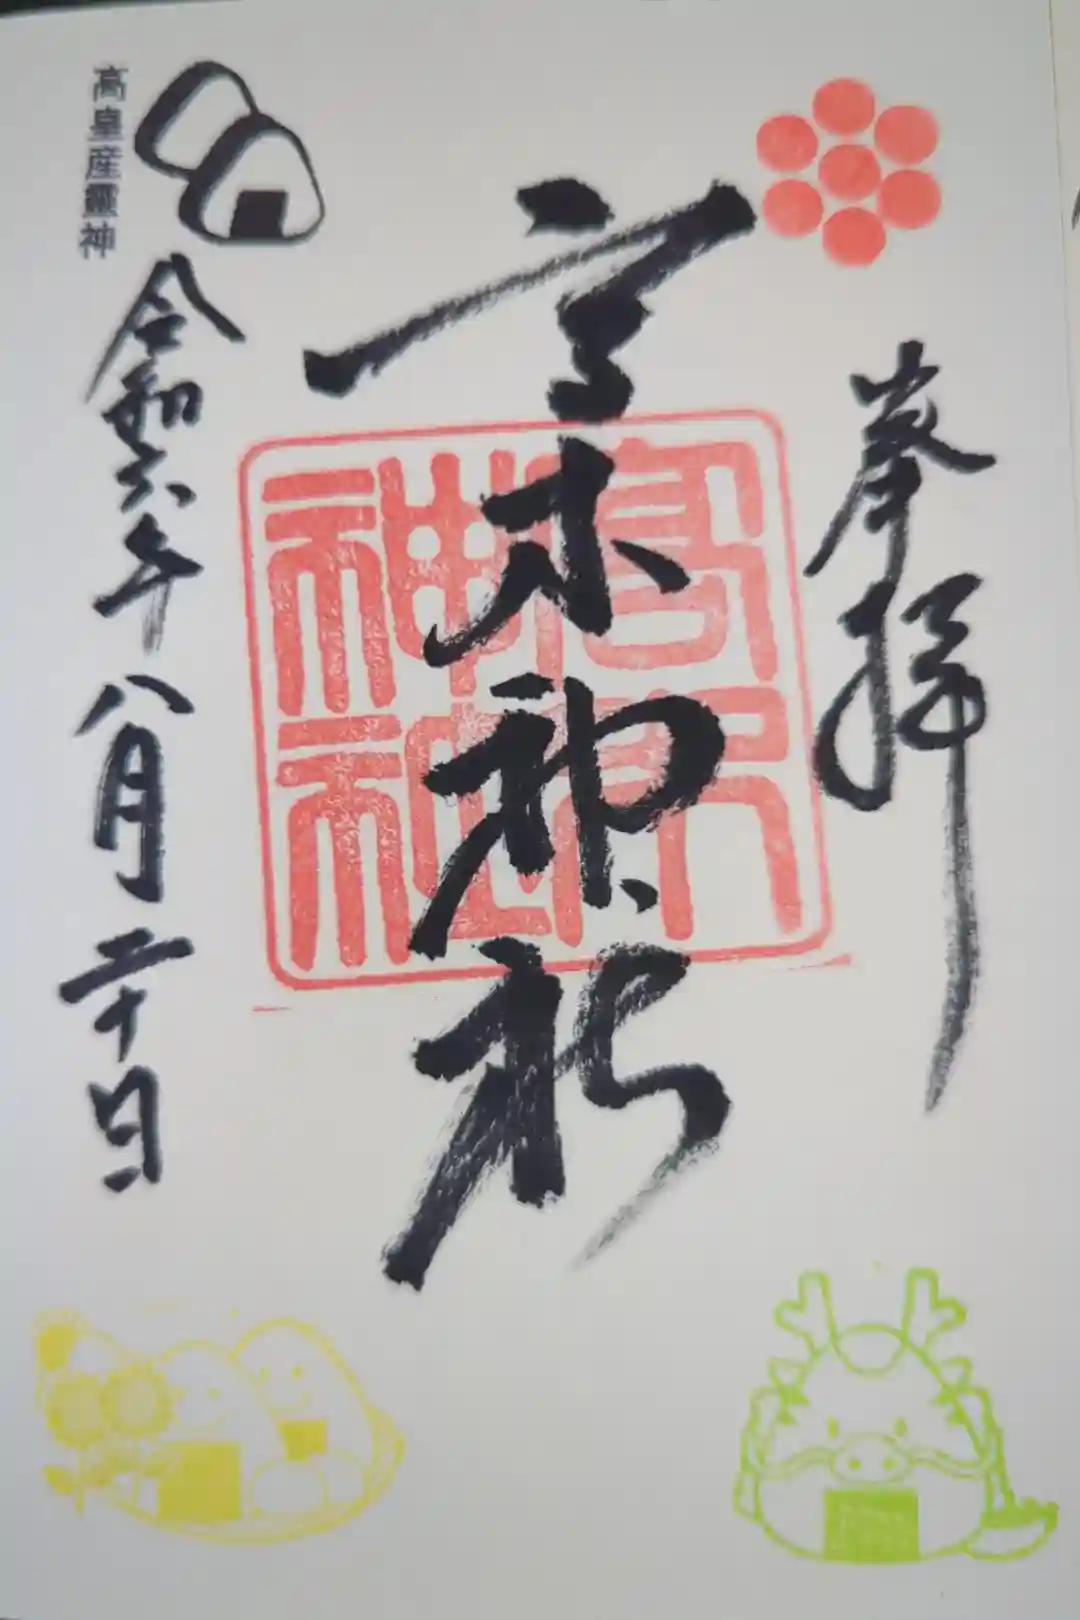 奉拝
高木神社
高木神社
高皇産靈神
令和六年八月二十日